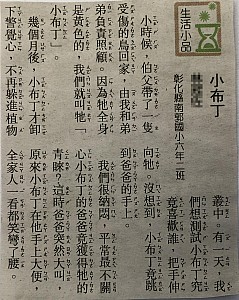 生活小品
小布丁
彰化縣南郭國小六年二班
小時候，伯父帶了一隻
受傷的鳥回家，由我和弟
弟負責照顧。因為牠全身
是黃色的，我們就叫牠「
小布丁」。
幾個月後，小布丁才卸
下警覺心，不再躲進植物
叢中。有一天，我
們想測試小布丁究
竟喜歡誰，把手伸
向牠。沒想到，小布丁竟跳
到爸爸的手上。
我們很納悶，平常漠不關
心小布丁的爸爸竟獲得牠的
青睞？這時爸爸突然大叫，
原來小布丁在他手上大便，
全家人一看都笑彎了腰。